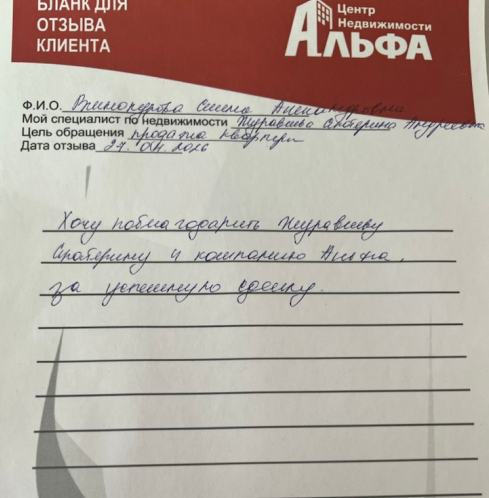 БЛАНК ДЛЯ
ОТЗЫВА
КЛИЕНТА
Центр
Недвижимости
АЛЬФА
Ф.И.О. Александровна
Мой специалист по недвижимости Журавлева Екатерина Андреевна
Цель обращения продажа квартиры
Дата отзыва 27.04.2026
Хочу поблагодарить Журавлеву
Екатерину и компанию Альфа,
за успешную сделку.